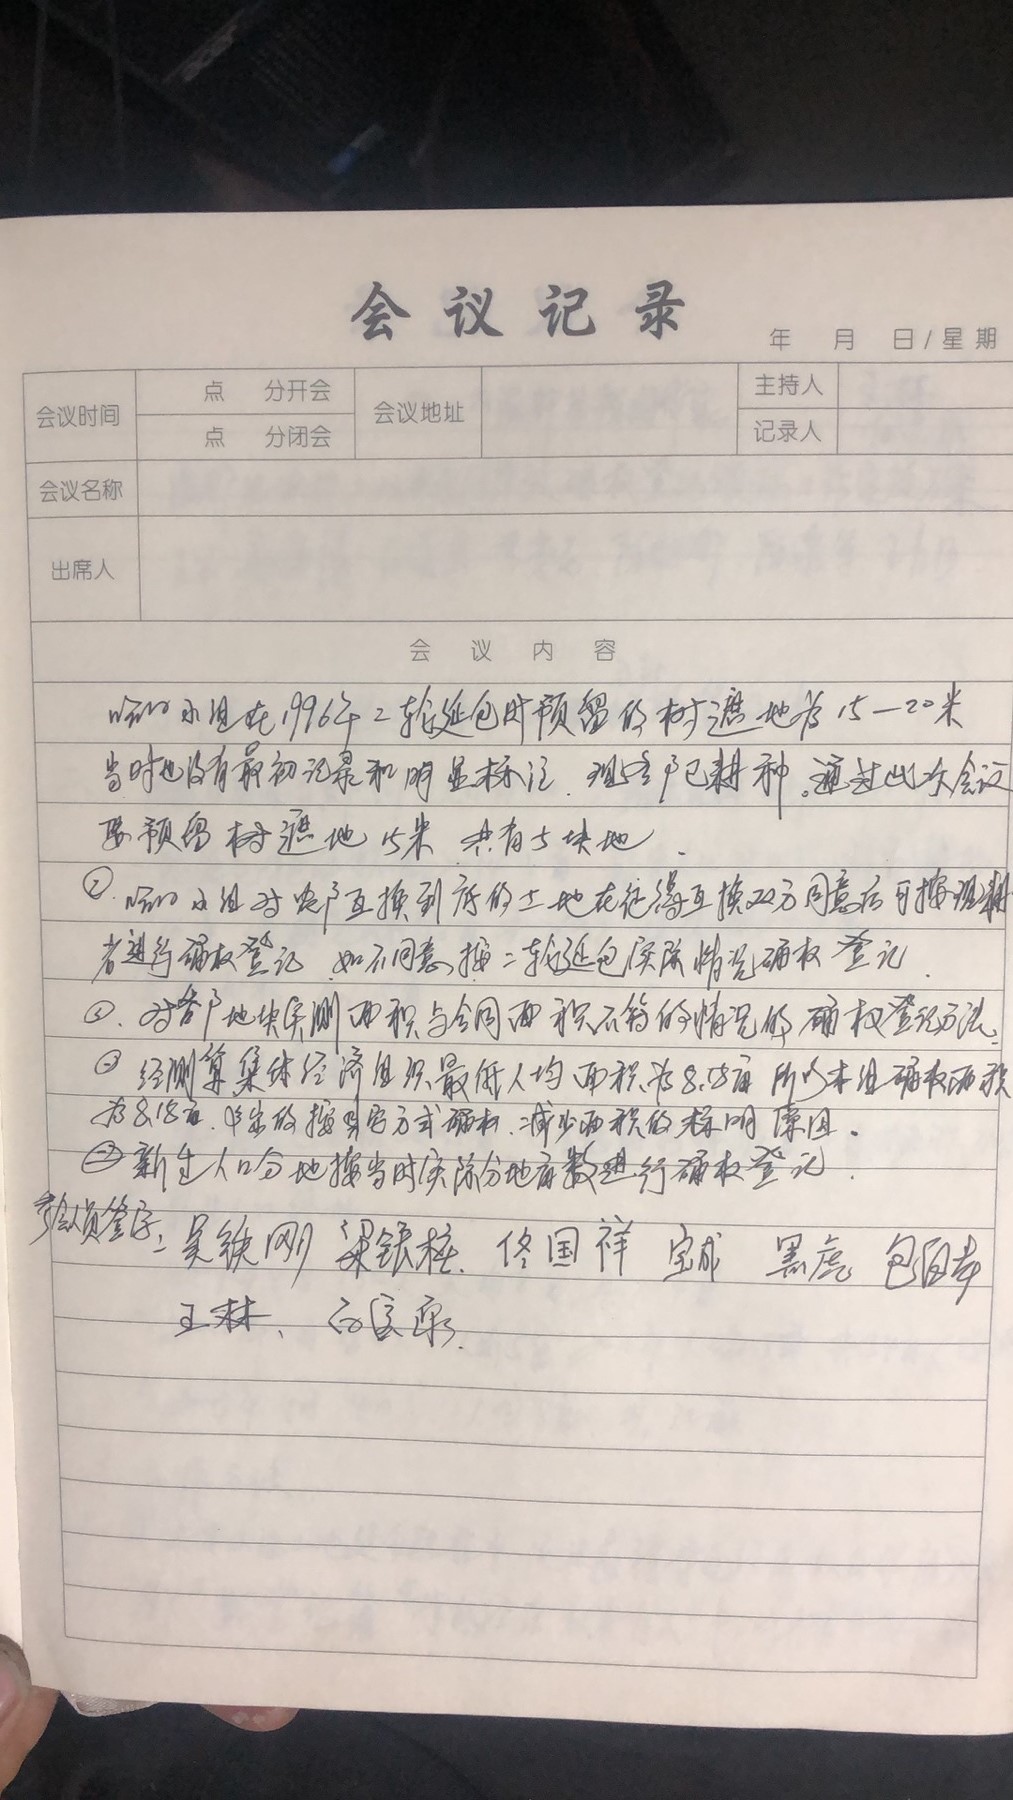 会议记录
年 月 日/星期
会议时间 点 分开会 会议地址 主持人
点 分闭会 记录人
会议名称
出席人
会议内容
小组在1996年二轮延包时预留的树遮地为15—20米
当时也没有最初记录和明显标注 现各户已耕种。通过此次会议
要预留树遮地15米 共有5块地.
②. 小组对农户互换到底的土地在征得互换双方同意后可按现耕
者进行确权登记 如不同意,按二轮延包实际情况确权登记.
③. 对各户地块实测面积与合同面积不符的情况的确权登记方法.
③ 经测算集体经济组织最低人均面积为8.18亩 所以本组确权面积
为8.18亩. 的按 方式确权.减少面积的标明原因.
④ 新生人口分地按当时实际分地亩数进行确权登记.
参会人员签字: 吴铁刚 梁银柱. 佟国祥 宝成 黑虎 包
王林、 白